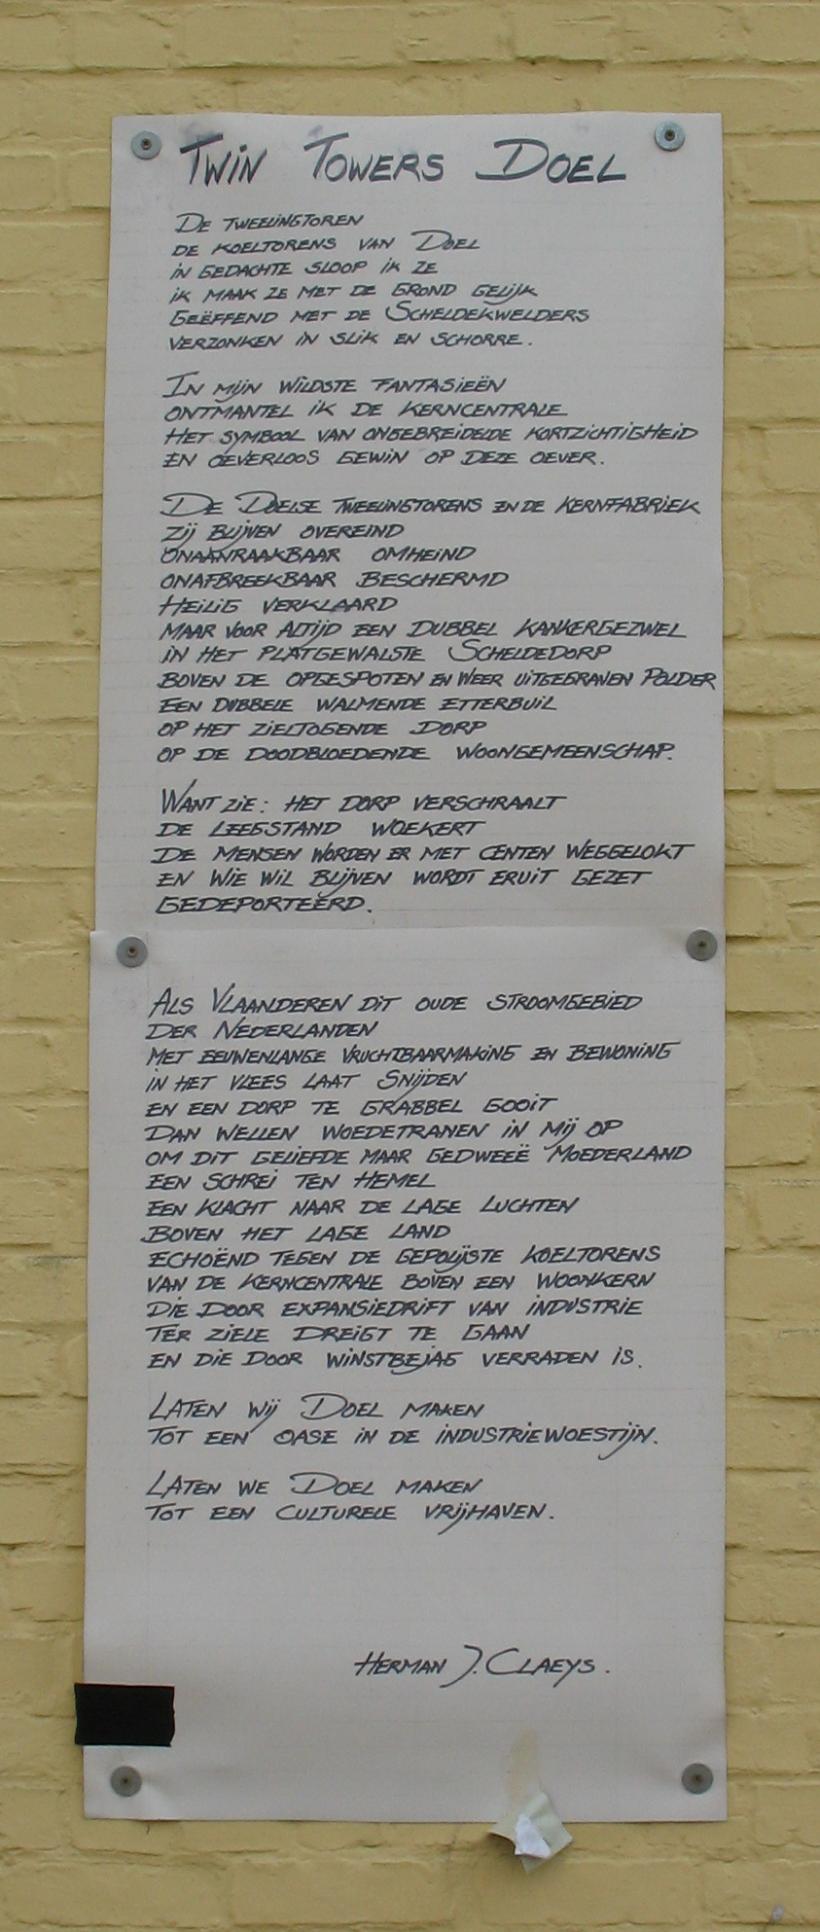 Twin Towers Doel
De tweelingtoren
de koeltorens van Doel
in gedachte sloop ik ze
ik maak ze met de grond gelijk
geëffend met de Scheldekwelders
verzonken in slik en schorre.
In mijn wildste fantasieën
ontmantel ik de kerncentrale
het symbool van ongebreidelde kortzichtigheid
en oeverloos gewin op deze oever.
De Doelse tweelingtorens en de kernfabriek
zij blijven overeind
onaanraakbaar omheind
onafbreekbaar beschermd
heilig verklaard
maar voor altijd een dubbel kankergezwel
in het platgewalste Scheldedorp
boven de opgespoten en weer uitgegraven polder
een dubbele walmende etterbuil
op het zieltogende dorp
op de doodbloedende woongemeenschap.
Want zie: het dorp verschraalt
de leegstand woekert
de mensen worden er met centen weggelokt
en wie wil blijven wordt eruit gezet
gedeporteerd.
Als Vlaanderen dit oude stroomgebied
der Nederlanden
met eeuwenlange vruchtbaarmaking en bewoning
in het vlees laat snijden
en een dorp te grabbel gooit
dan wellen woedetranen in mij op
om dit geliefde maar gedweeë moederland
een schrei ten hemel
een klacht naar de lage luchten
boven het lage land
echoënd tegen de gepolijste koeltorens
van de kerncentrale boven een woonkern
die door expansiedrift van industrie
ter ziele dreigt te gaan
en die door winstbejag verraden is.
Laten wij Doel maken
tot een oase in de industriewoestijn.
Laten we Doel maken
tot een culturele vrijhaven.
Herman J. Claeys.